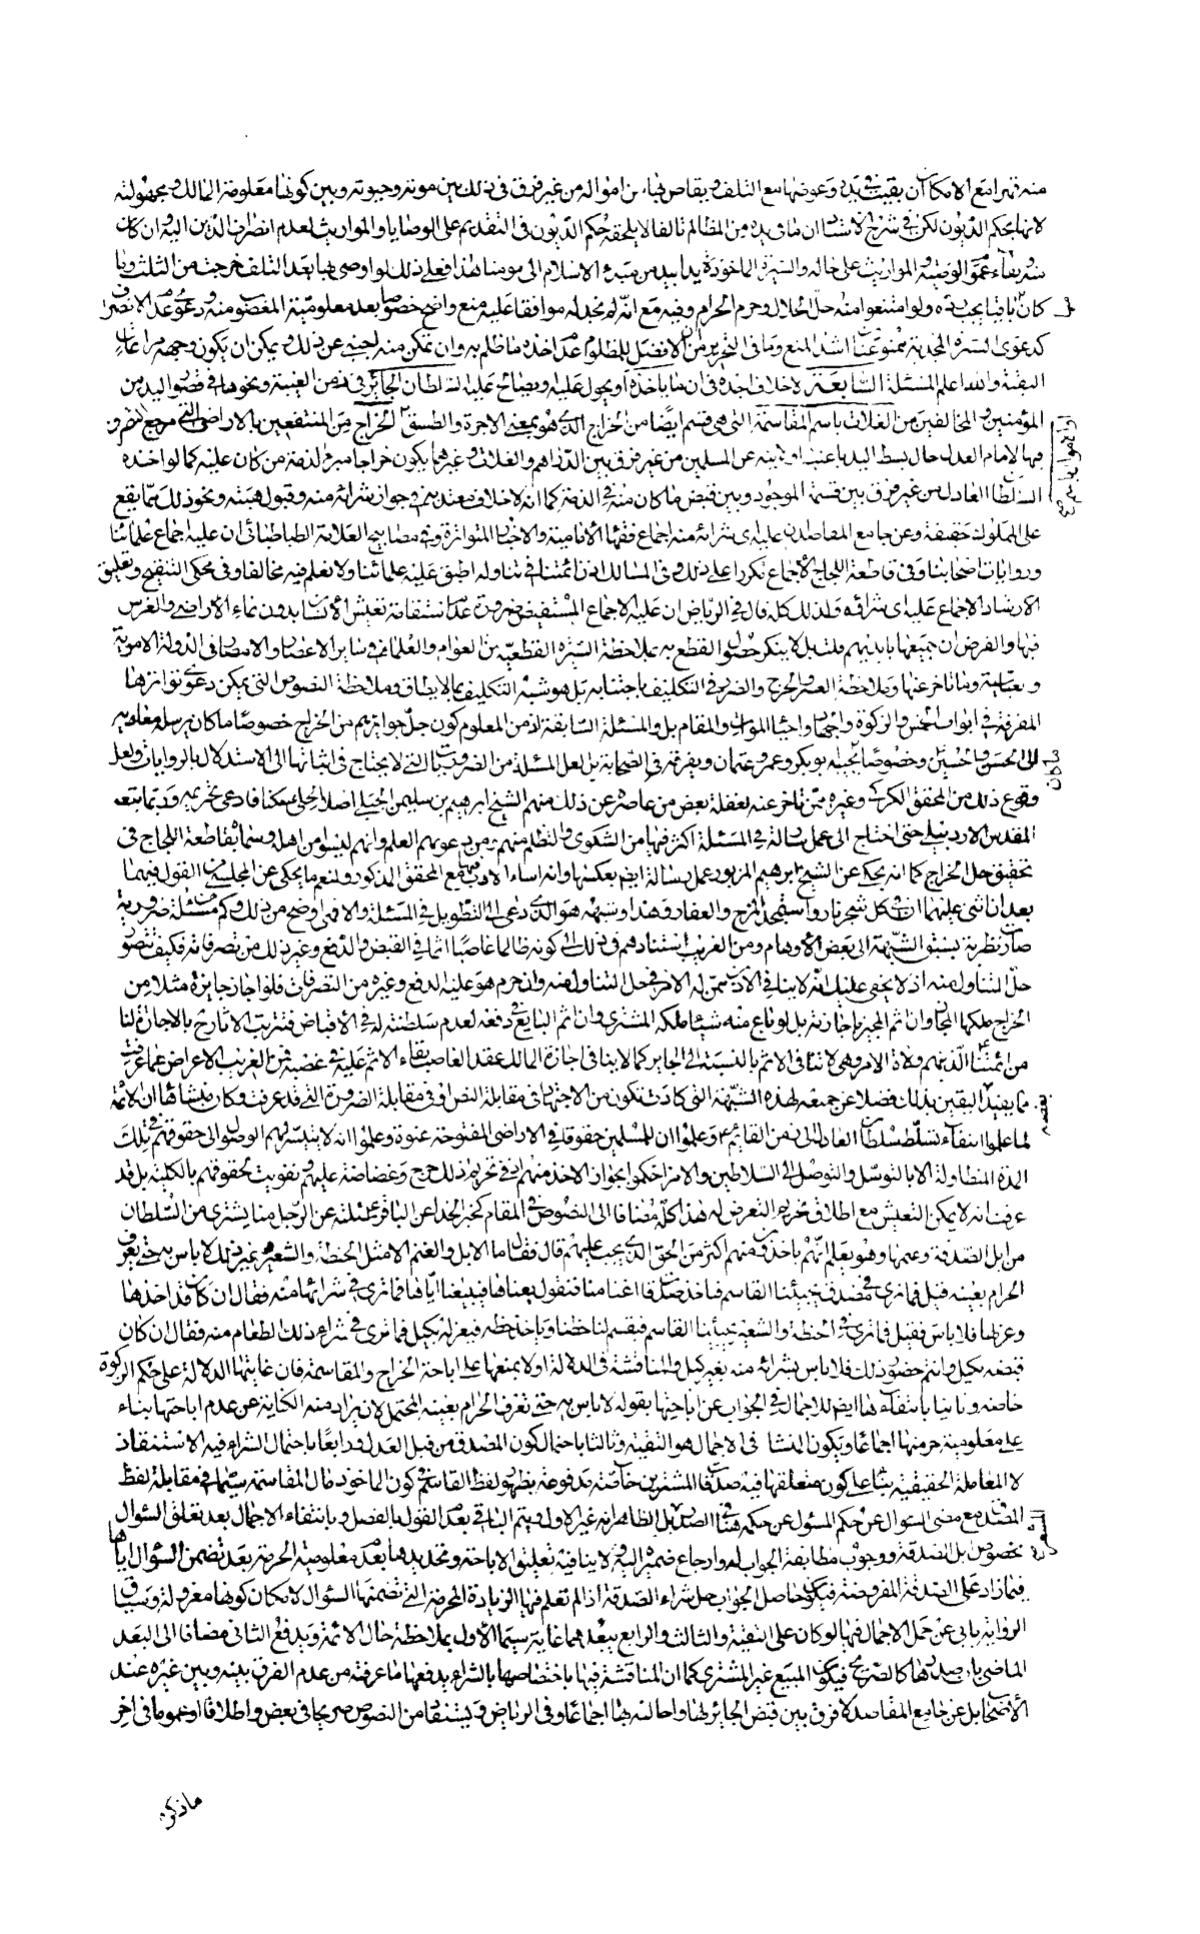 منه قهرا مع الامكان ان بقيت في يده وعوضها مع التلف ويقاص بها من امواله من غير فرق في ذلك بين موته وحيوته وبين كونها معلومة المالك ومجهولته
لانها بحكم الديون لكن في شرح الاستاد ان ما في يده من المظالم تالفا لا يلحقه حكم الديون في التقديم على الوصايا والمواريث لعدم انصراف الدين اليه وان كان
منه وبقاء عموم الوصية والمواريث على حاله والسيرة الماخوذة يدا بيد من مبدء الاسلام الى يومنا هذا فعلى ذلك لو اوصى بها بعد التلف خرجت من الثلث وما
كان باقيا يجب رده ولو امتنعوا منه حل الحلال وحرم الحرام وفيه مع انه لم نجد له موافقا عليه منع واضح خصوصا بعد معلومية المغصوب منه ودعوى عدم الانصراف
كدعوى السيرة المجدية ممنوعتان اشد المنع وما في التحرير من ان الافضل للمظلوم عدم اخذه ما ظلم به وان تمكن منه اجنبي عن ذلك ويمكن ان يكون وجهه مراعاة
التقية والله اعلم المسئلة السابعة لا خلاف اجده في ان ما ياخذه او يحول عليه ويصالح عليه السلطان الجائر في زمن الغيبة ونحوها في قصور اليد من
المؤمنين والمخالفين من الغلات باسم المقاسمة التي هي قسم ايضا من الخراج الذي هو بمعنى الاجرة والطسق الخراج من المنتفعين بالاراضي التي مرجع التصرف
فيها الامام العدل حال بسط اليد باعتبار نيابته عن المسلمين من غير فرق بين الدراهم والغلات وغيرهما يكون خراجا مبرء لذمة من كان عليه كما لو اخذه
السلطان العادل من غير فرق بين قسمة الموجود وبين قبض ما كان منه في الذمة كما انه لا خلاف معتد به في جواز شرائه منه وقبول هبته ونحو ذلك مما يقع
على المملوك حقيقة وعن جامع المقاصد ان عليه اي شرائه منه اجماع فقهاء الامامية والاخبار المتواترة وفي مصابيح العلامة الطباطبائي ان عليه اجماع علمائنا
وروايات اصحابنا وفي قاطعة اللجاج الاجماع مكررا على ذلك وفي المسالك اذن ائمتنا في تناوله اطبق عليه علمائنا ولا نعلم فيه مخالفا وفي محكي التنقيح وتعليق
الارشاد الاجماع عليه اي شرائه ولذلك كله قال في الرياض ان عليه الاجماع المستفيض ضرورة عدم استقامة تعيش الانسان بدون نماء الاراضي والغرس
فيها والفرض ان جميعها بايديهم قلت بل لا ينكر حصول القطع به بملاحظة السيرة القطعية من العوام والعلماء في سائر الاعصار والامصار في الدولة الاموية
والعباسية وما تاخر عنها وبملاحظة العسر والحرج والضرر في التكليف باجتنابه بل هو شبه التكليف بما لا يطاق وملاحظة النصوص التي يمكن دعوى تواترها
المفرقة في ابواب الخمس والزكوة والجهاد واحياء الموات والمقام بل والمسئلة السابقة لان من المعلوم كون جل جوايزهم من الخراج خصوصا ما كان يرسله معاوية
الى الحسن والحسين وخصوصا يجبيه ابو بكر وعمر وعثمان ويفرقه في الصحابة بل لعل المسئلة من الضروريات التي لا يحتاج في اثباتها الى الاستدلال بالروايات ولعل
وقوع ذلك من المحقق الكركي وغيره ممن تاخر عنه لغفلة بعض من عاصره عن ذلك منهم الشيخ ابرهيم بن سليمن الجبلي اصلا الحلي مسكنا فادعى تحريمه وربما تبعه
المقدس الاردبيلي حتى احتاج الى عمل رسالة في المسئلة اكثر فيها من الشكوى والتظلم منهم ومن دعويهم العلم وانهم ليسوا من اهله وسماها قاطعة اللجاج في
تحقيق حل الخراج كما انه يحكى عن الشيخ ابرهيم المزبور عمل رسالة ايضا بعكسها وانه اساء الادب فيها مع المحقق المذكور ولنعم ما يحكى عن المجلسي من القول فيهما
بعد ان اثنى عليهما ان في كل شجر نار واستمجد المرخ والعفار وهذا وشبهه هو الذي دعى الى التطويل في المسئلة والا فهي اوضح من ذلك وكم من مسئلة ضرورية
صارت نظرية بسبق الشبهة الى بعض الاوهام ومن الغريب استنادهم في ذلك الى كونه ظالما غاصبا اثما في القبض والدفع وغير ذلك من تصرفاته فكيف تتصور
حل التناول منه اذ لا يخفى عليك انه لا ينافي الاذن ممن له الامر في حل التناول منه وان حرم هو عليه الدفع وغيره من التصرفات فلو اجاز جايزة مثلا من
الخراج ملكها المجاز وان اثم المجيز باجازته بل لو باع منه شيئا ملكه المشتري وان اثم البايع في دفعه لعدم سلطنته له في الاقباض فترتب الاثار بالاجازة لنا
من ائمتنا الذين هم ولاة الامر وهي لا تنافي الاثم بالنسبة الى الجاير كما لا ينافي اجازة المالك عقد الغاصب بقاء الاثم عليه في غصبه فمن الغريب الاعراض عما عرفت
مما يفيد اليقين بذلك فضلا عن جميعه لهذه الشبهة التي كادت تكون من الاجتهاد في مقابلة النص او في مقابلة الضرورة التي قد عرفت وكان منشاها ان الائمة
لما علموا انتفاء تسلط سلطان العادل الى زمن القائم ع وعلموا ان للمسلمين حقوقا في الاراضي المفتوحة عنوة وعلموا انه لا يتيسر لهم الوصول الى حقوقهم في تلك
المدة المتطاولة الا بالتوسل والتوصل الى السلاطين والامراء حكموا بجواز الاخذ منهم اذ في تحريم ذلك حرج وغضاضة عليهم وتفويت لحقوقهم بالكلية بل قد
عرفت انه لا يمكن التعيش مع اطلاق تحريم التعرض له هذا كله مضافا الى النصوص في المقام كخبر الحذاء عن الباقر ع سئلته عن الرجل منا يشتري من السلطان
من ابل الصدقة وغنمها وهو يعلم انهم ياخذون منهم اكثر من الحق الذي يجب عليهم قال فقال ما الابل والغنم الا مثل الحنطة والشعير وغير ذلك لا باس به حتى يعرف
الحرام بعينه قيل فما ترى في مصدق يجيئنا القاسم فياخذ صدقات اغنامنا فنقول بعناها فيبيعنا اياها فما ترى في شرائها منه فقال ان كان قد اخذها
وعزلها فلا باس فقيل فما ترى في الحنطة والشعير يجيئنا القاسم فيقسم لنا حظنا وياخذ حظه فيعزله بكيل فما ترى في شراء ذلك الطعام منه فقال ان كان
قبضه بكيل وانتم حضور ذلك فلا باس بشرائه منه بغير كيل والمناقشة في الدلالة اولا بمنعها على اباحة الخراج والمقاسمة فان غايتها الدلالة على حكم الزكوة
خاصة وثانيا بانتفاءها ايضا للاجمال في الجواب عن اباحتها بقوله لا باس به حتى تعرف الحرام بعينه المحتمل لان يراد منه الكناية عن عدم اباحتها بناء
على معلومية حرمتها اجماعا ويكون المنشا في الاجمال هو التقية وثالثا باحتمال كون المصدق من قبل العدل ورابعا باحتمال الشراء فيه الاستنقاذ
لا المعاملة الحقيقية بناء على كون متعلقها فيه صدقات المشترين خاصة مدفوعة بظهور لفظ القاسم في كون الماخوذ مال المقاسمة سيما في مقابلة لفظ
المصدق مع مضي السؤال عن حكم المسئول عن حكمه هنا في الصدر بل الظاهر انه غير الاول ويتم الباقي بعدم القول بالفصل وبانتفاء الاجمال بعد تعلق السؤال
بخصوص ابل الصدقة ووجوب مطابقة الجواب له وارجاع ضميره اليه ولا ينافيه تعليق الاباحة وتحديدها بعدم معلومية الحرمة بعد تضمن السؤال اياها
فيما زاد على الصدقة المفروضة فيكون حاصل الجواب حل شراء الصدقة اذا لم تعلم فيها الزيادة المحرمة التي تضمنها السؤال لامكان كونها معزولة وسياق
الرواية يابى عن حمل الاجمال فيها لو كان على التقية والثالث والرابع ببعدهما غاية سيما الاول بملاحظة حال الائمة ويدفع الثاني مضافا الى البعد
الماضي بان صدرها كالصريح في كون المبيع غير المشتري كما ان المناقشة فيها باختصاصها بالشراء يدفعها ما عرفته من عدم الفرق بينه وبين غيره عند
الاصحاب بل عن جامع المقاصد لا فرق بين قبض الجائر لها واحالته بها اجماعا وفي الرياض ويستفاد من النصوص صريحا في بعض واطلاقا او عموما في اخر
ماذكره